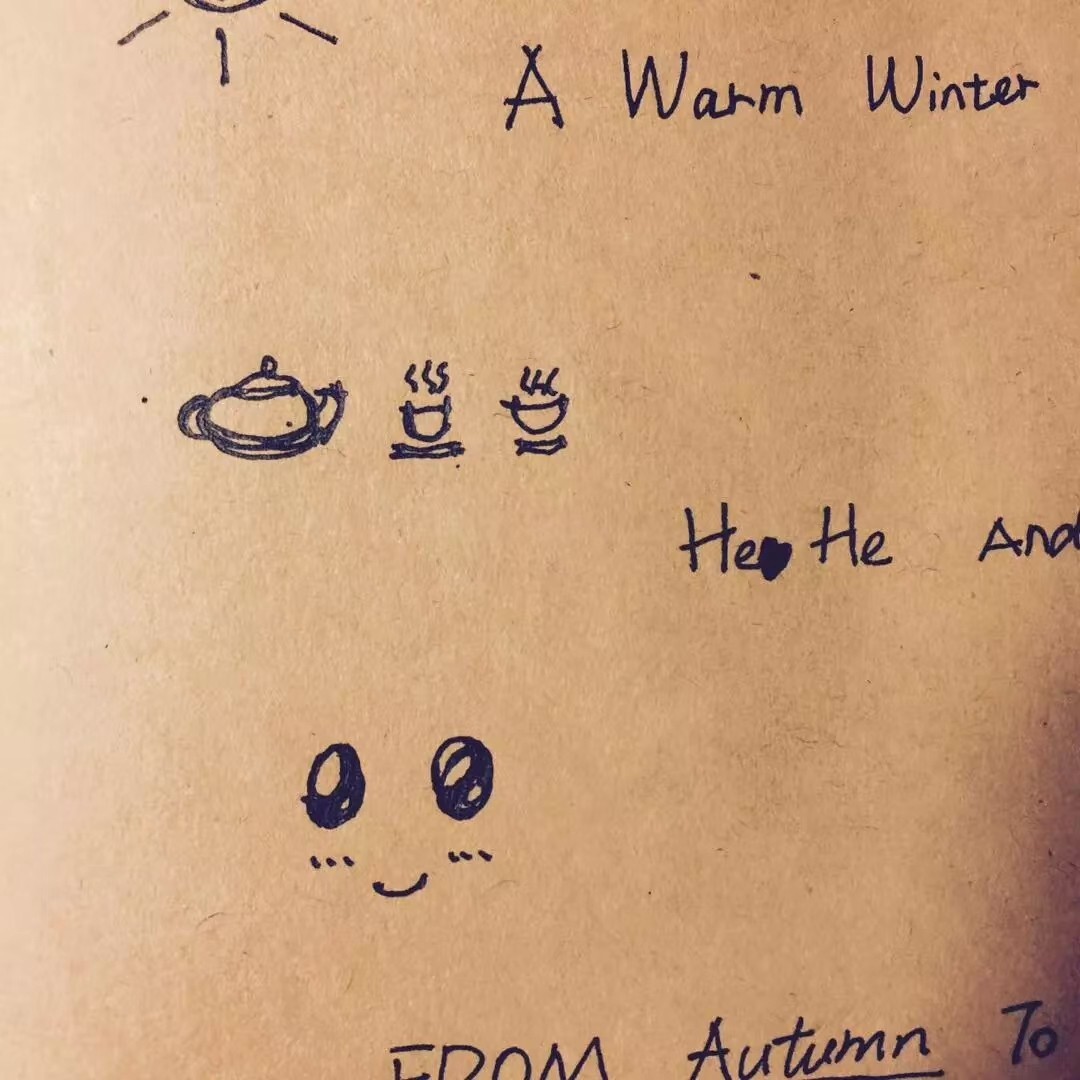 A Warm Winter
He He And
FROM Autumn To